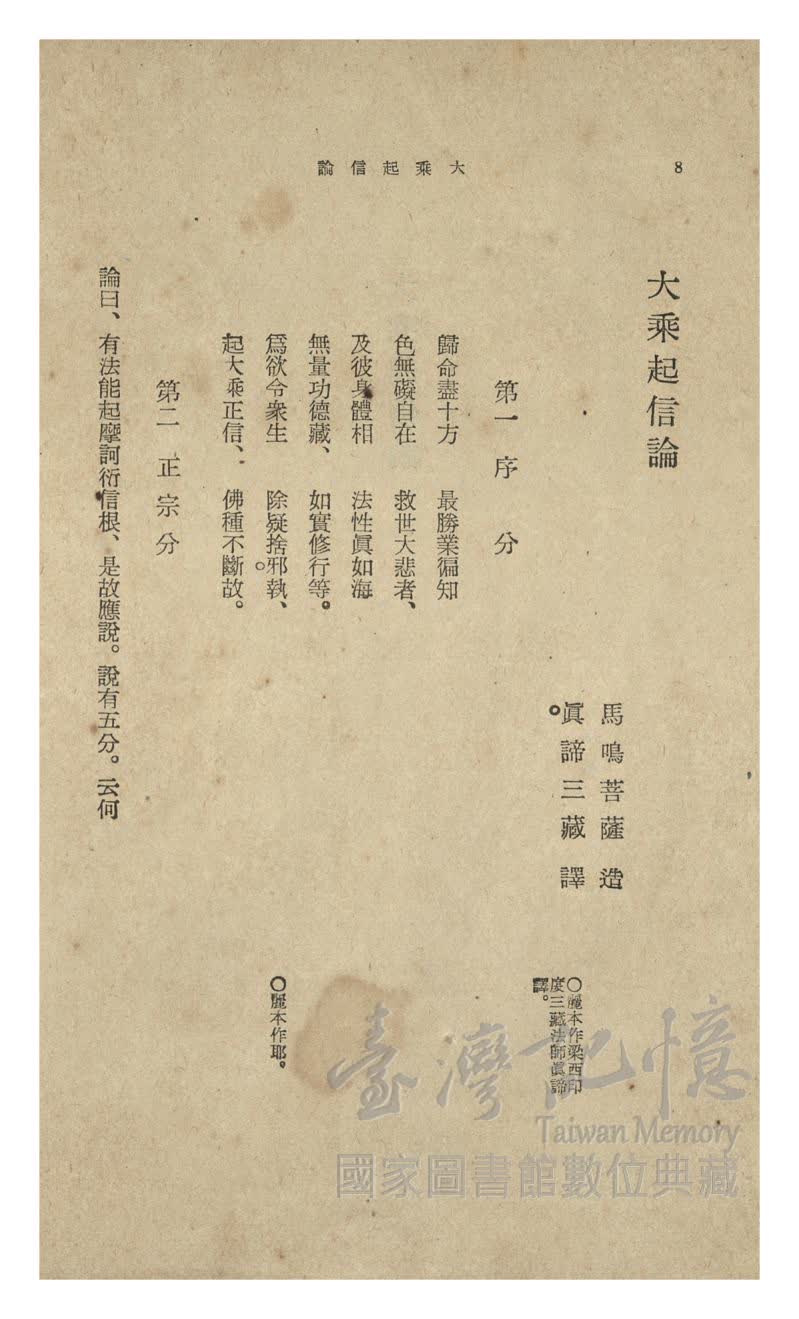 8
大乘起信論
大乘起信論
馬鳴菩薩造
眞諦三藏譯
○麗本作梁西印
度三藏法師眞諦
譯。
第一 序 分
歸命盡十方 最勝業徧知
色無礙自在 救世大悲者、
及彼身體相 法性眞如海
無量功德藏、 如實修行等。
爲欲令衆生 除疑捨○邪執、
起大乘正信、 佛種不斷故。
○麗本作耶。
第二 正宗分
論曰、有法能起摩訶衍信根、是故應說。說有五分。云何
臺灣記憶
Taiwan Memory
國家圖書館數位典藏